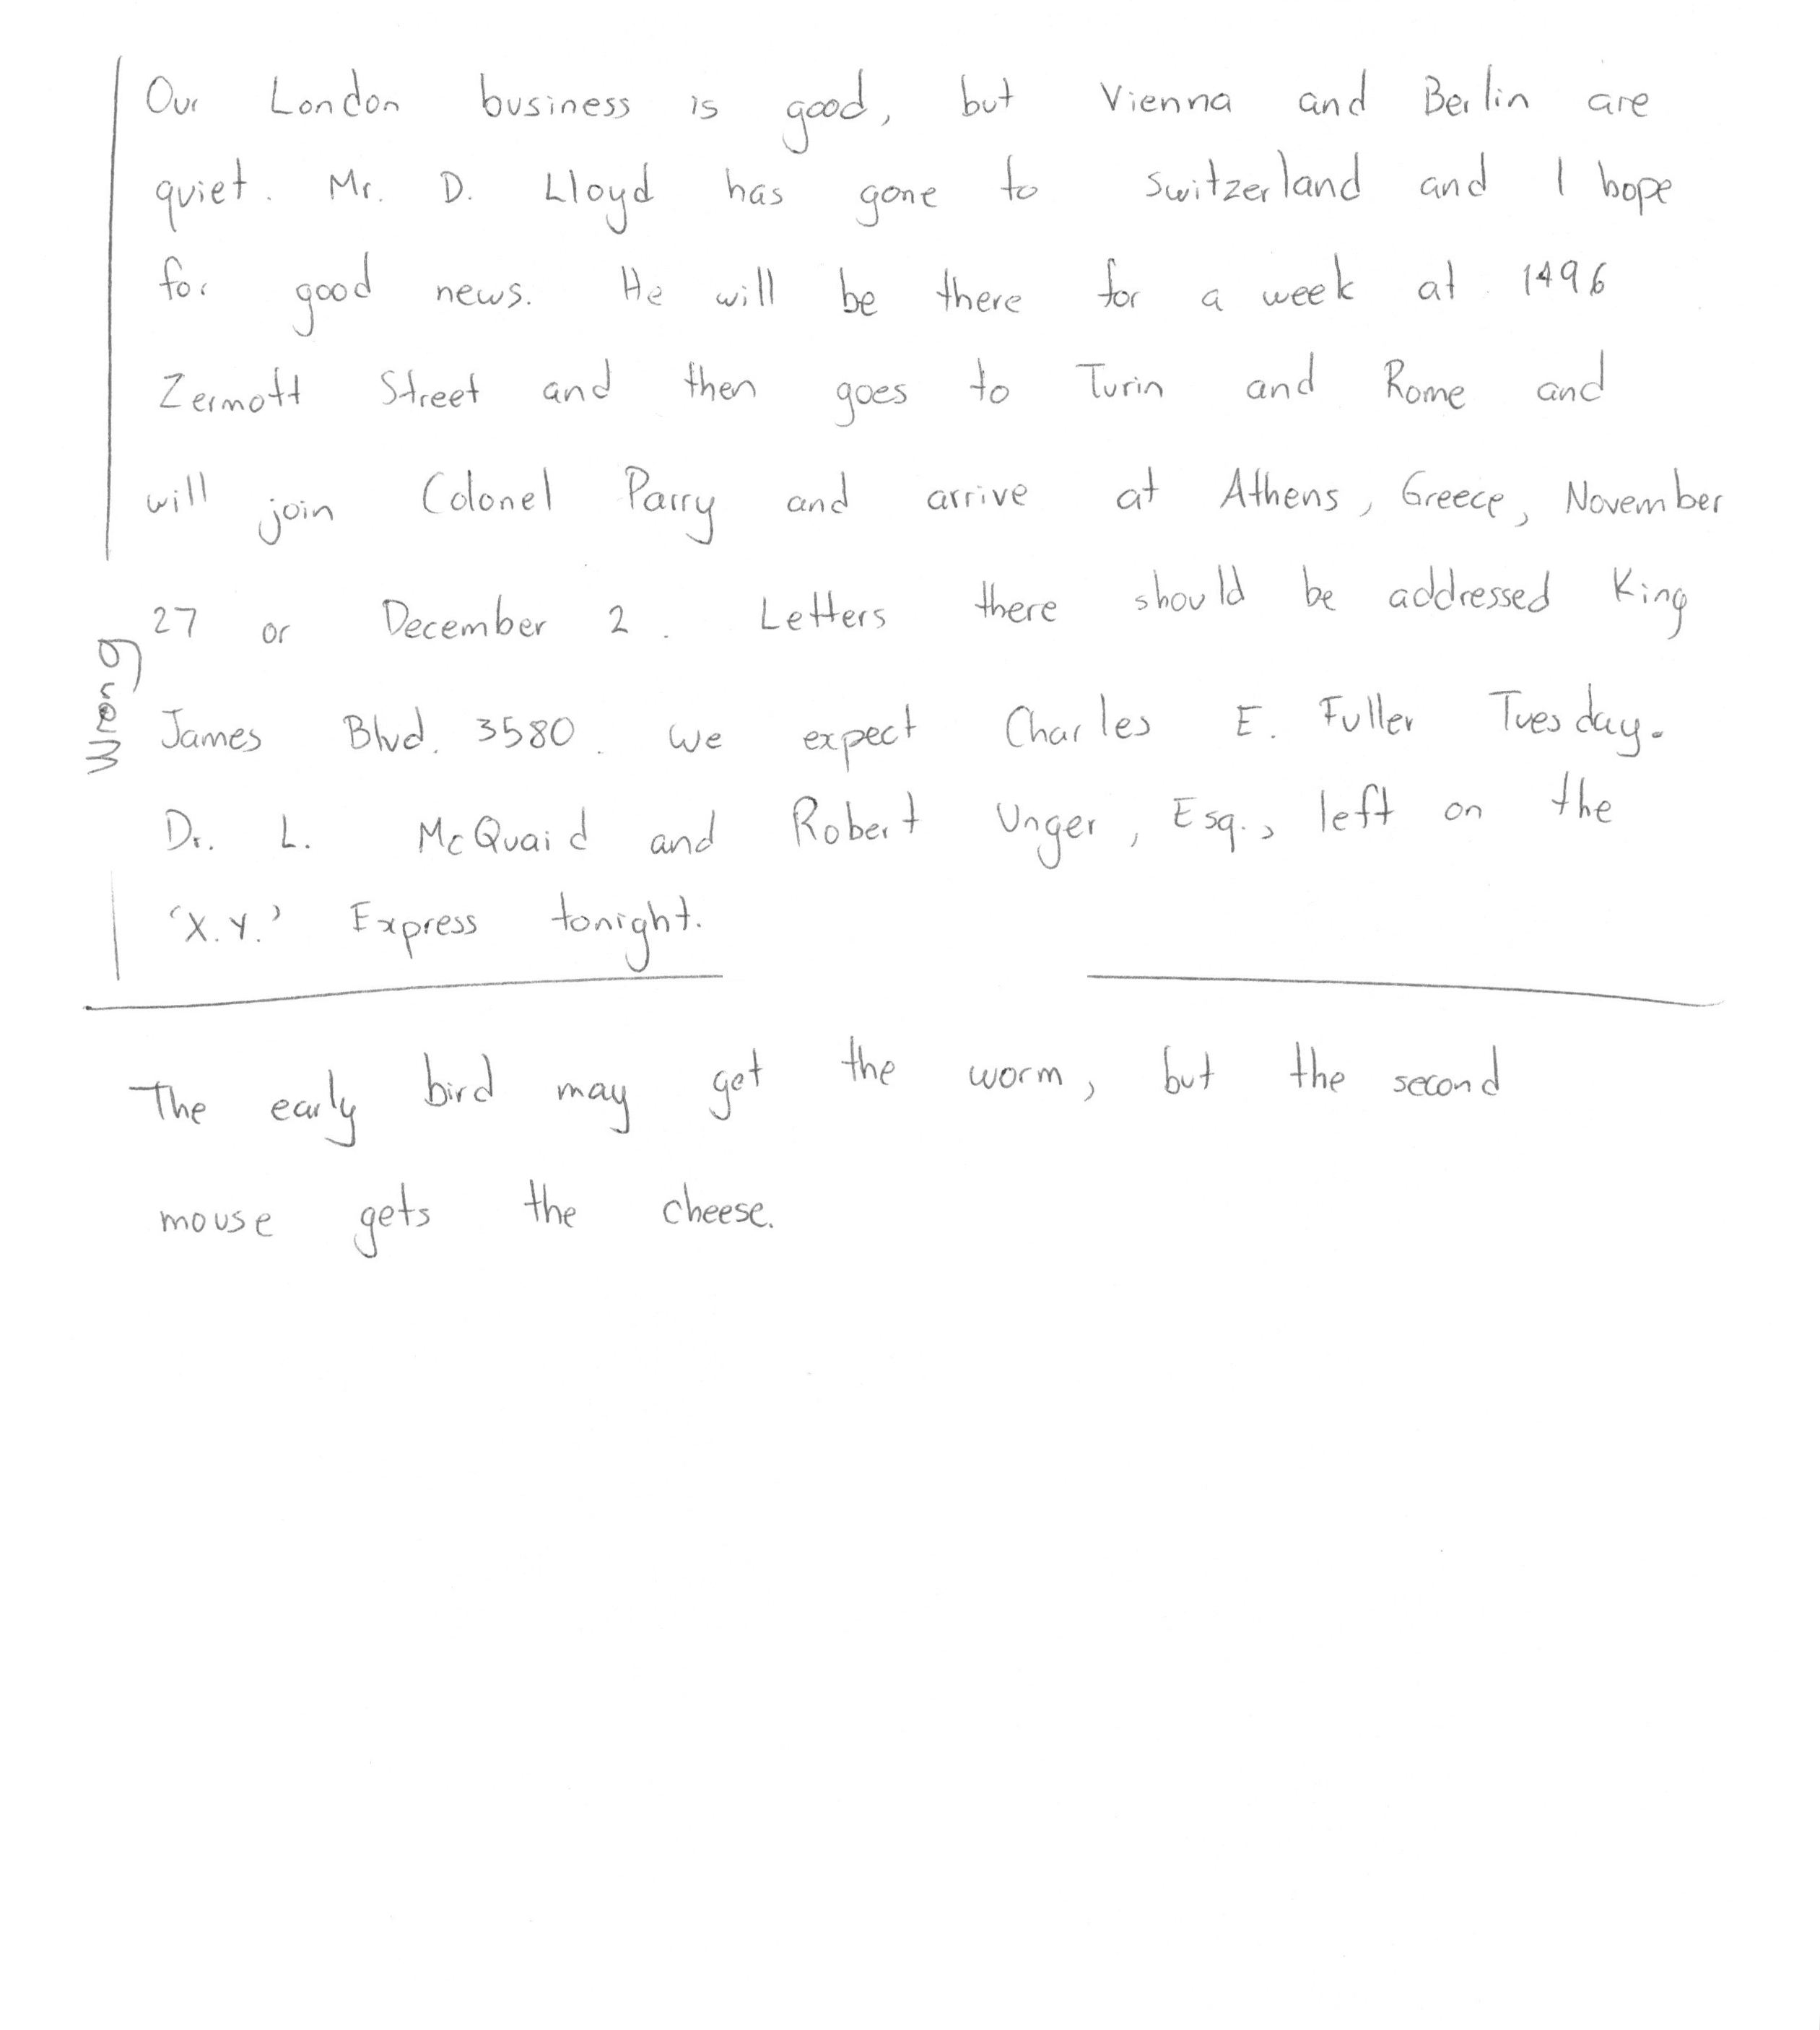 Our London business is good, but Vienna and Berlin are
quiet. Mr. D. Lloyd has gone to Switzerland and I hope
for good news. He will be there for a week at 1496
Zermott Street and then goes to Turin and Rome and
will join Colonel Parry and arrive at Athens, Greece, November
27 or December 2. Letters there should be addressed King
James Blvd. 3580. We expect Charles E. Fuller Tuesday.
Dr. L. McQuaid and Robert Unger, Esq., left on the
'X.Y.' Express tonight.
Wrong
The early bird may get the worm, but the second
mouse gets the cheese.